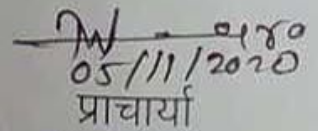 05/11/2020
प्राचार्या